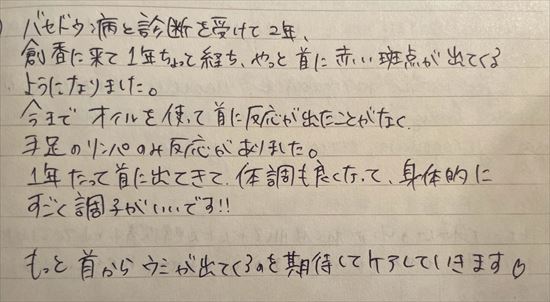 バセドウ病と診断を受けて2年、
創香に来て1年ちょって経ち、やっと首に赤い斑点が出てくる
ようになりました。
今まで オイルを使って首に反応が出たことがなく
手足のリンパのみ反応がありました。
1年たって首に出てきて、体調も良くなって、身体的に
すごく調子がいいです!!
もっと首からウミが出てくるのを期待してケアしていきます♡